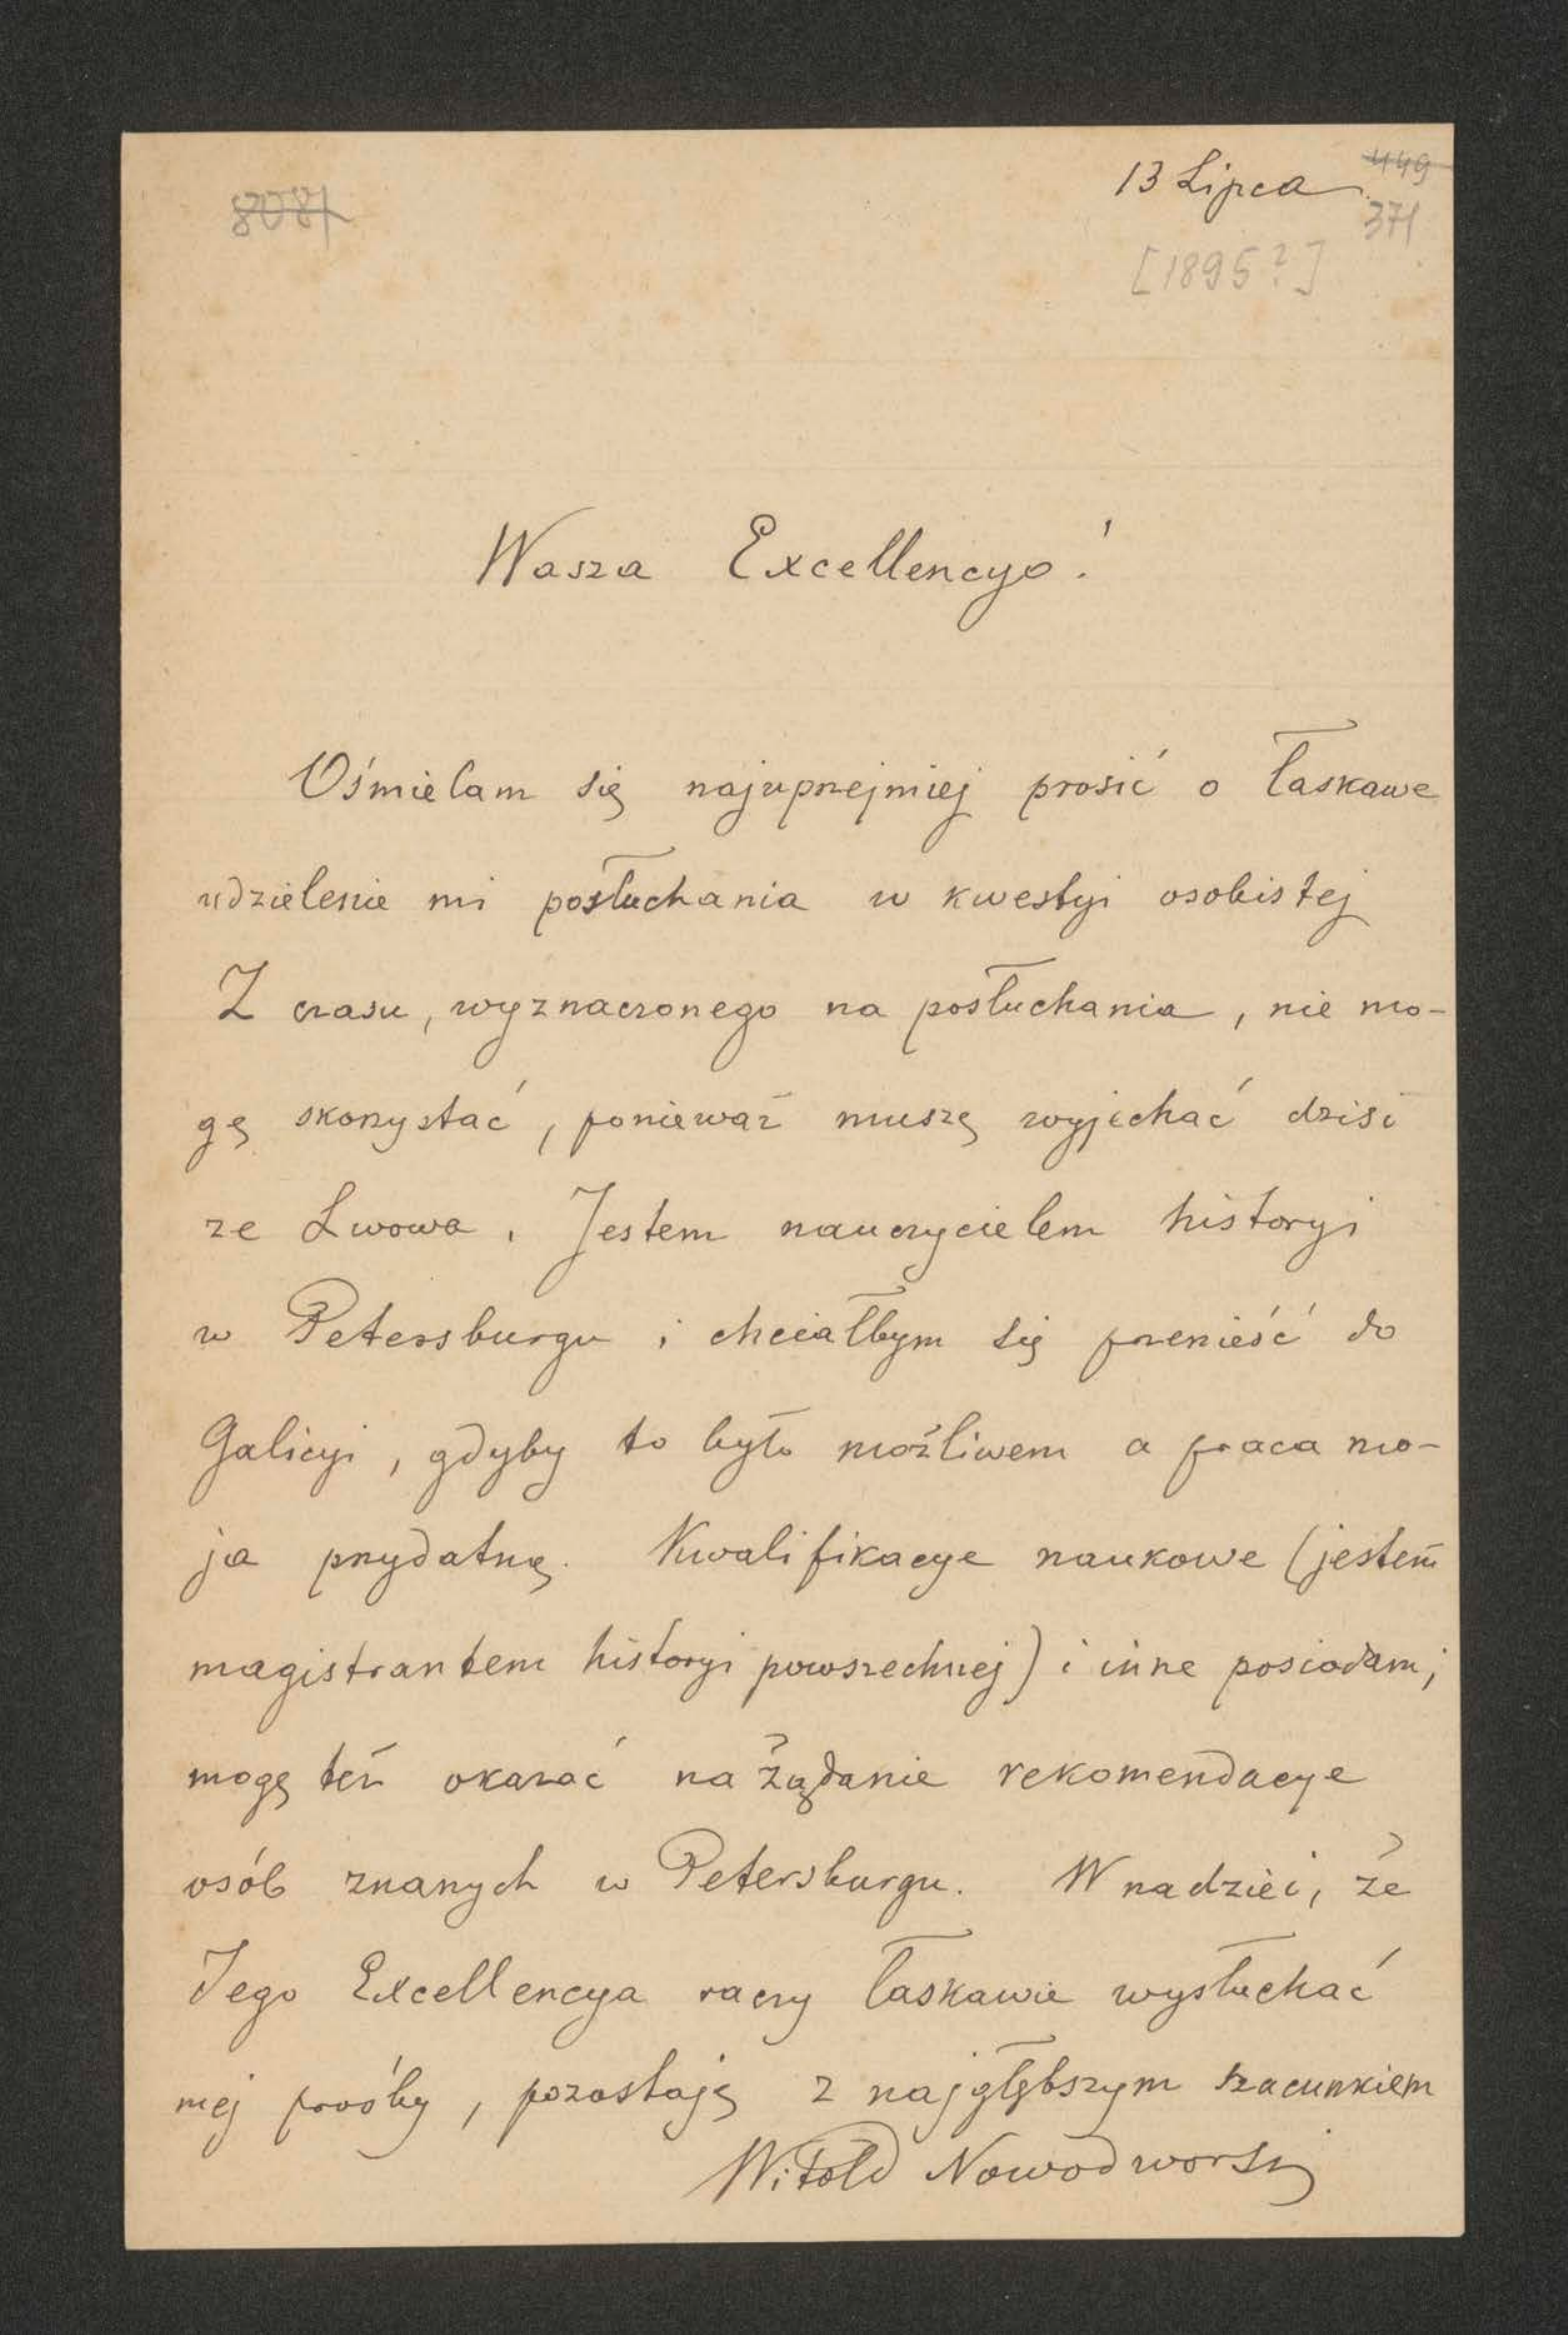 13 Lipca
449
8081
371
[1895?]
Wasza Excellencyo!
Ośmielam się najuprzejmiej prosić o łaskawe
udzielenie mi posłuchania w kwestyi osobistej
Z czasu, wyznaczonego na posłuchania, nie mo-
gę skorzystać, ponieważ muszę wyjechać dziś
ze Lwowa. Jestem nauczycielem historyi
w Petersburgu i chciałbym się przenieść do
Galicyi, gdyby to było możliwem a praca mo-
ja przydatną. Kwalifikacye naukowe (jestem
magistrantem historyi powszechnej) i inne posiadam;
mogę też okazać na żądanie rekomendacye
osób znanych w Petersburgu. W nadziei, że
Jego Excellencya raczy łaskawie wysłuchać
mej prośby, pozostaję z najgłębszym szacunkiem
Witold Nowodworski